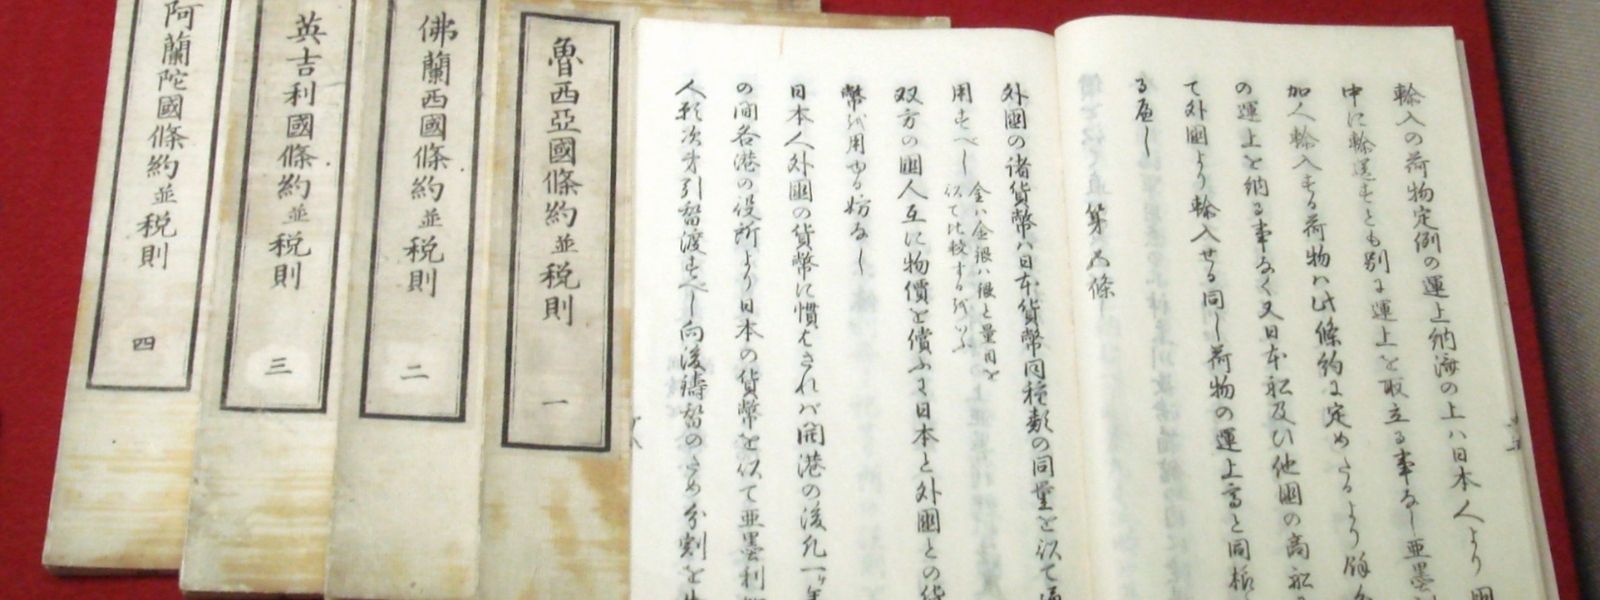 輸入の荷物定例の運上納済の上ハ日本人より國
中に輸送すとも別に運上を取立る事なし亜墨
加人輸入する荷物ハ此條約に定めたるより餘
の運上を納る事なく又日本船及ひ他國の商船
て外國より輸入せる同し荷物の運上高と同様
る辺し
第五條
外國の諸貨幣ハ日本貨幣同種類の同量を以て通
用すへし 金ハ金銀ハ銀と量目を以て比較するを以ふ
双方の國人互に物價を償ふに日本と外國との貨
幣を用ゆる妨なし
日本人外國の貨幣に慣はされハ開港の後凡一ケ年
の間各港の役所より日本の貨幣を以て亜墨利
人願次第引替渡すへし向後鋳替のため分割を
魯西亞國條約並税則 一
佛蘭西國條約並税則 二
英吉利國條約並税則 三
阿蘭陀國條約並税則 四